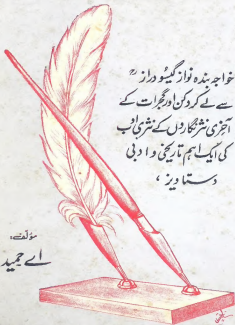 خواجہ بندہ نواز گیسُو درازؒ
سے لے کر دکن اور گجرات کے
آخری نثر نگاروں کے نثری ادب
کی ایک اہم تاریخی و ادبی
دستاویز ،
مؤلف:
اے حمید